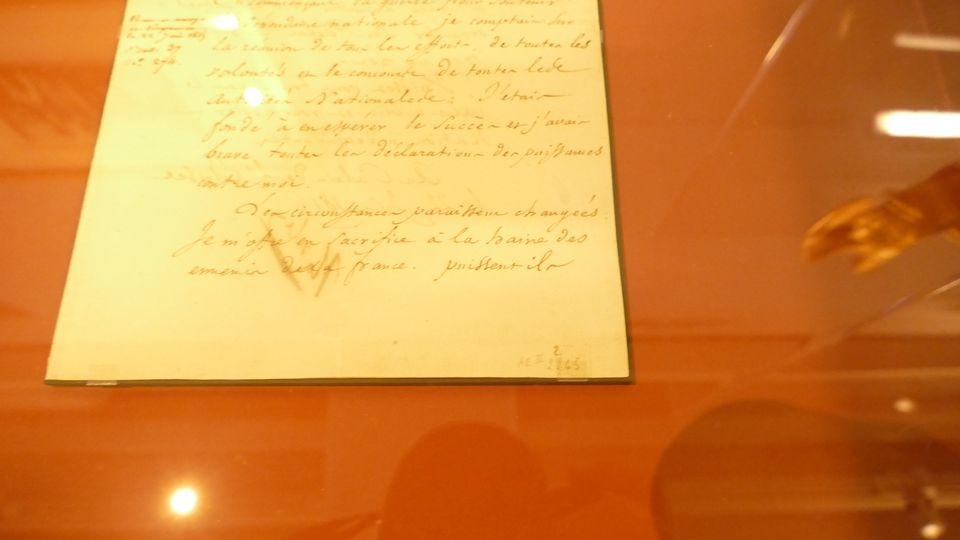 commençant la guerre pour soutenir
nationale je comptais sur
la reunion de tous les efforts, de toutes les
volontés et le concours de toutes les
autorités Nationales. J'étais
fondé à en espérer le succès et j'avais
bravé toutes les déclarations des puissances
contre moi.
Les circonstances paraissent changées.
Je m'offre en sacrifice à la haine des
ennemis de la france. puissent ils
AE II 2